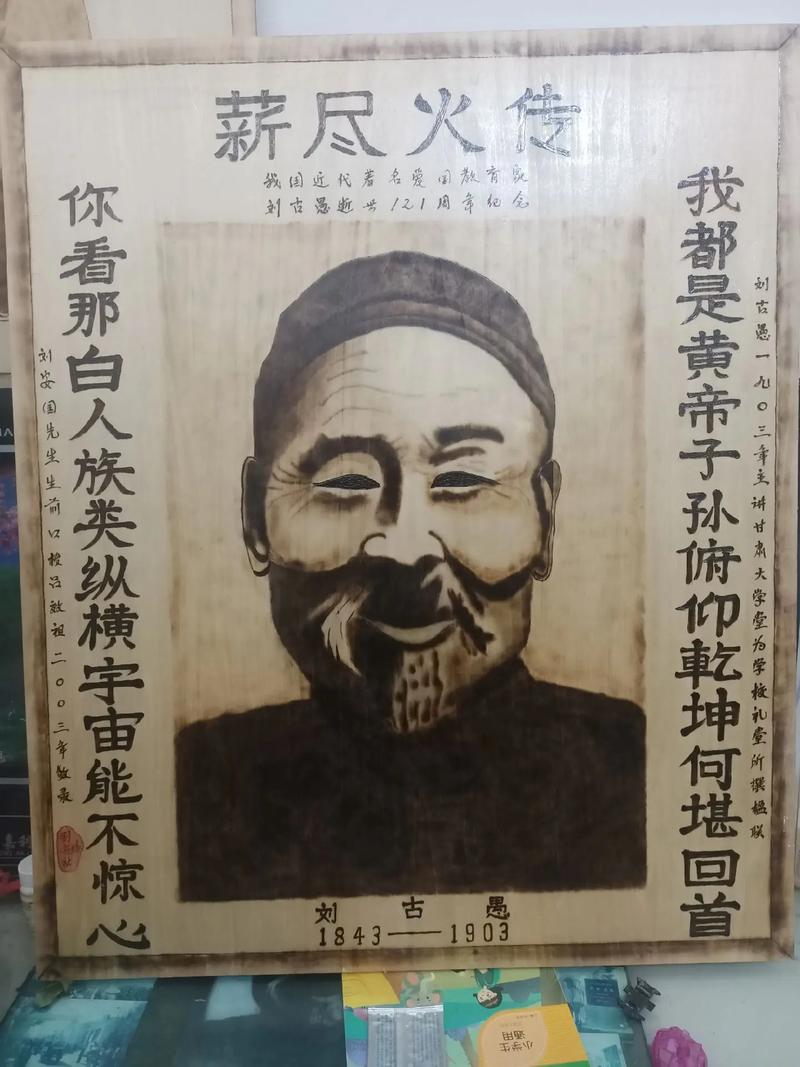 薪尽火传
我国近代著名爱国教育家
刘古愚逝世121周年纪念
我都是黄帝子孙俯仰乾坤何堪回首
刘古愚一九〇三年主讲甘肃大学堂为学校礼堂所撰楹联
你看那白人族类纵横宇宙能不惊心
刘安国先生生前口授吕效祖二〇〇三年敬录
刘古愚
1843——1903
小学生
通用